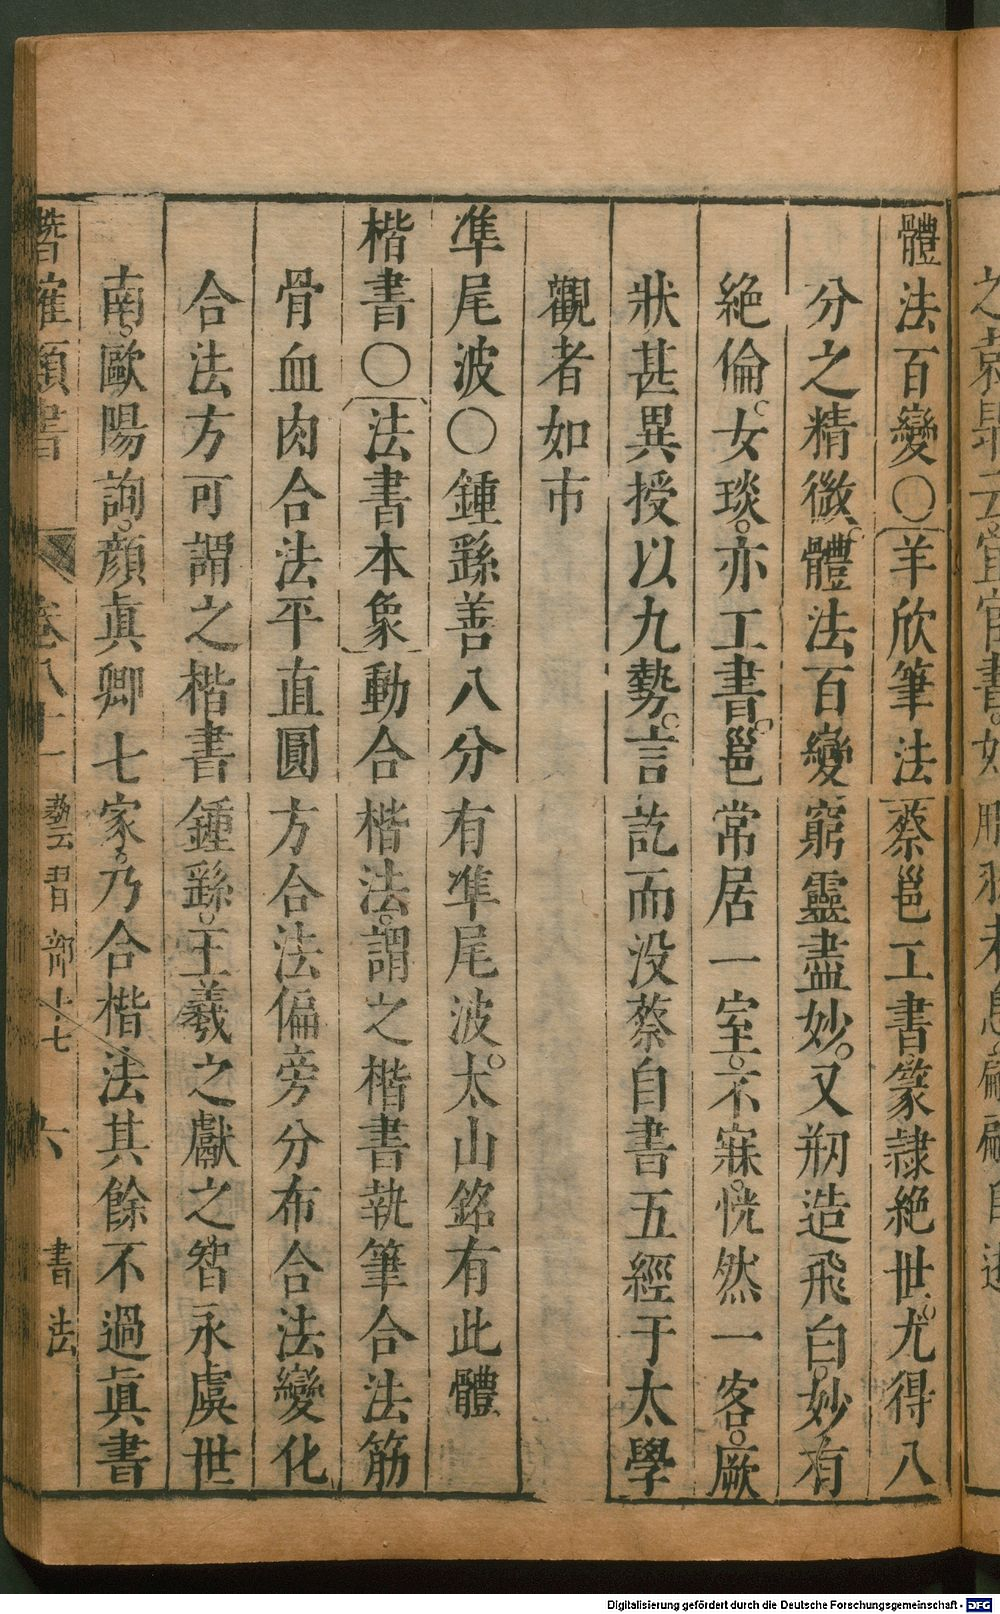 體法百變〇羊欣筆法蔡邕工書篆隷絶世尤得八
分之精微體法百變窮靈盡妙又刱造飛白妙有
絶倫女琰亦工書邕常居一室不寐恍然一客厥
狀甚異授以九勢言訖而没蔡自書五經于太學
觀者如市
凖尾波〇鍾繇善八分有凖尾波太山銘有此體
楷書〇法書本象動合楷法謂之楷書執筆合法筋
骨血肉合法平直圓方合法偏旁分布合法變化
合法方可謂之楷書鍾繇王羲之獻之智永虞世
南歐陽詢顔眞卿七家乃合楷法其餘不過眞書
潛確類書 卷八十一 藝習部十七 六 書法
Digitalisierung gefördert durch die Deutsche Forschungsgemeinschaft - DFG